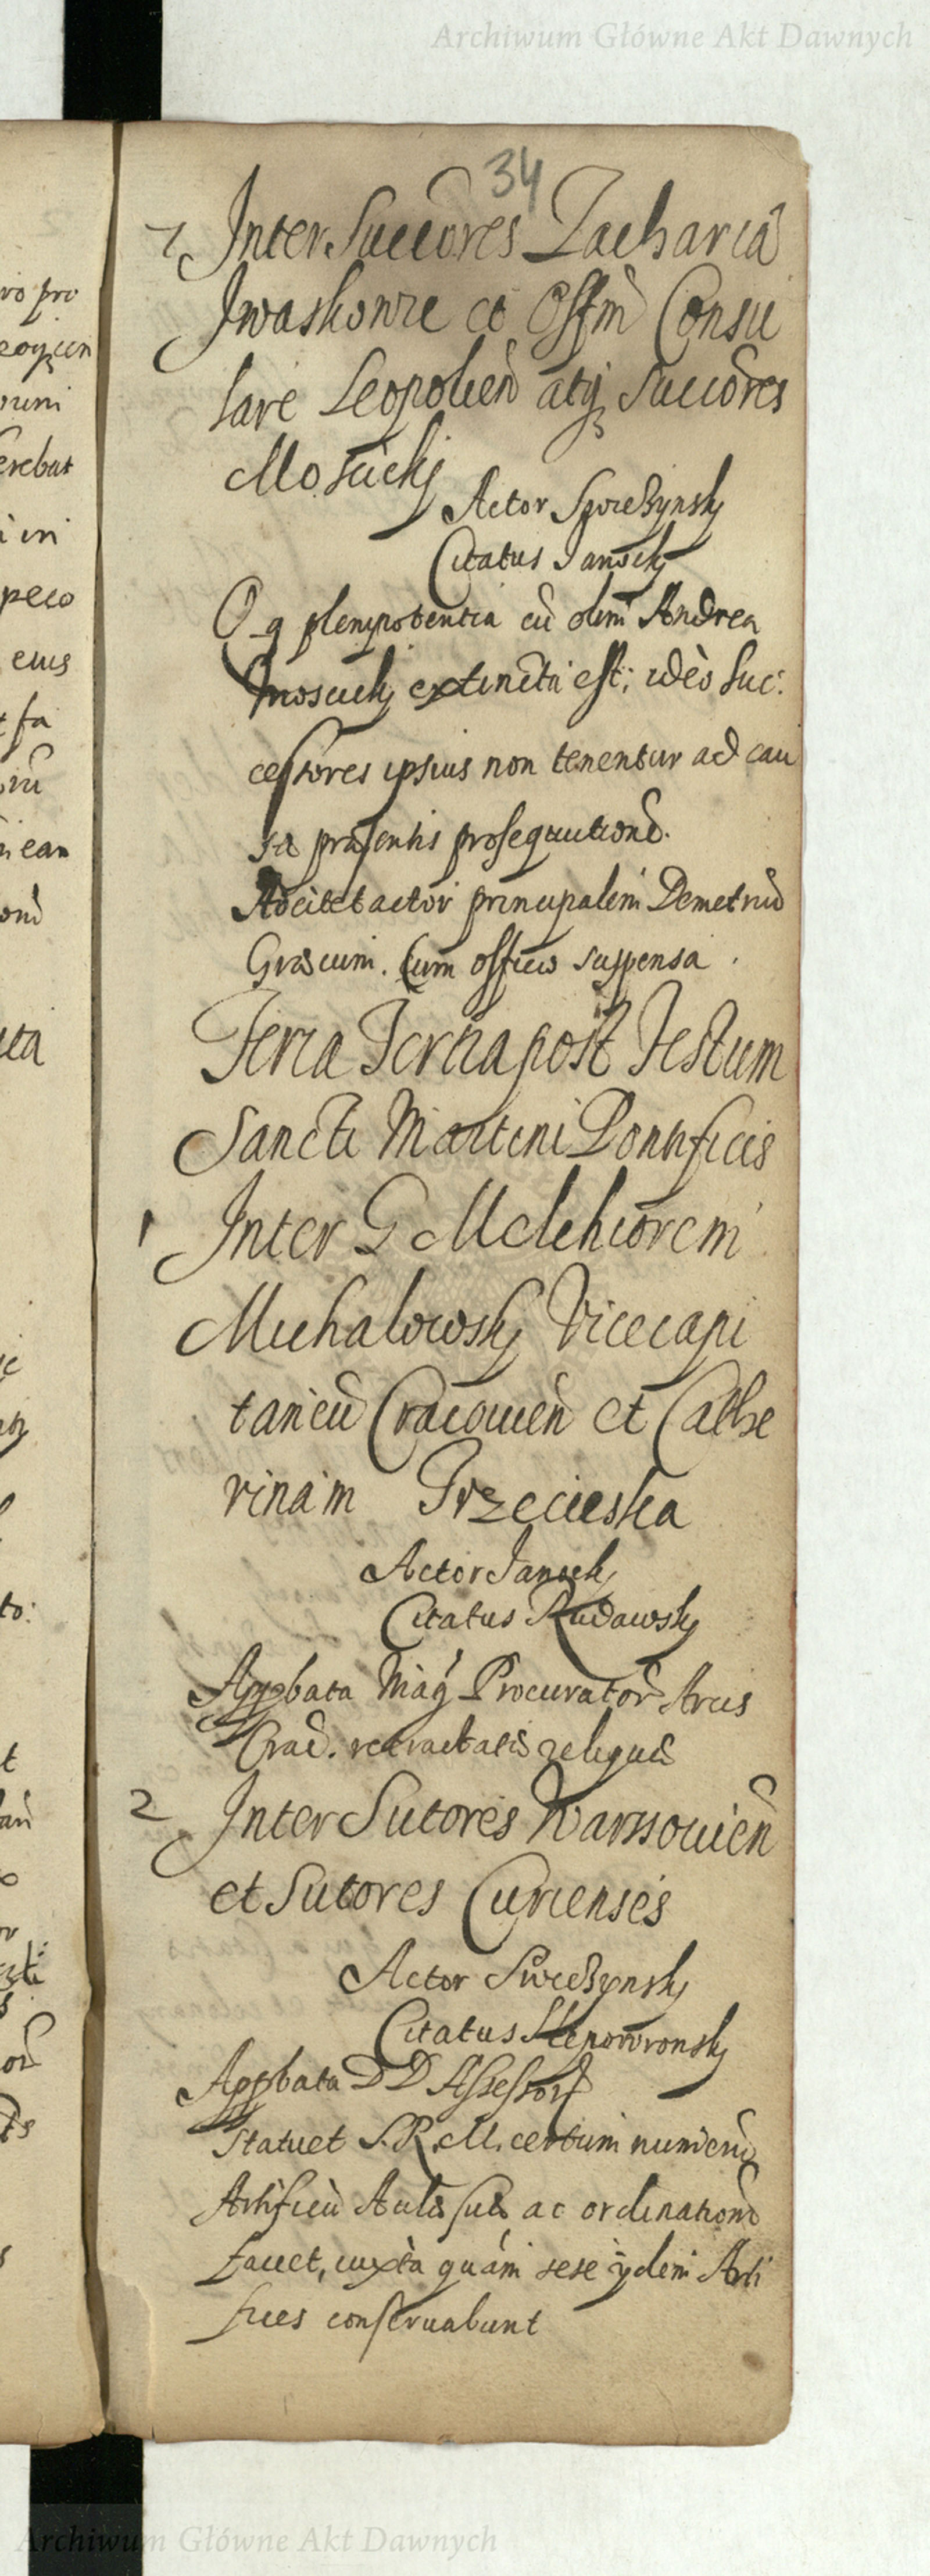 Archiwum Główne Akt Dawnych
34
7 Inter Succōres Zachariā
Iwaskowie et Offm̄ Consu
lare Leopolien̄ atq̨ Succōres
Moscicky
Actor Swieżynsky
Citatus Janocky
O q plenipotentia cū olim Andrea
Moscicky extincta est, ideò suc:
cessores ipsius non tenentur ad cau
sæ præsentis prosequutionē.
Adcitet actor principalem Demetriū
Græcum. Cum officio suspensa.
Feria Tertia post Festum
Sancti Martini Pontificis
1 Inter G Melchiorem
Michalowsky Vicecapi
taneū Cracovien̄ et Cathe
rinam Trzecieska
Actor Janocky
Citatus Rudawsky
Appbata Mag Procurator Arcis
Crac. retractatis reliquis
2 Inter Sutores Warssovien̄
et Sutores Curienses
Actor Swieżynsky
Citatus Slepowronsky
Appbata D D Assessorū
Statuet S. R. M. certum numerū
Artificū Aulæ suæ ac ordinationē
faciet, iuxta quàm sese ijdem Arti
fices conservabunt
Archiwum Główne Akt Dawnych